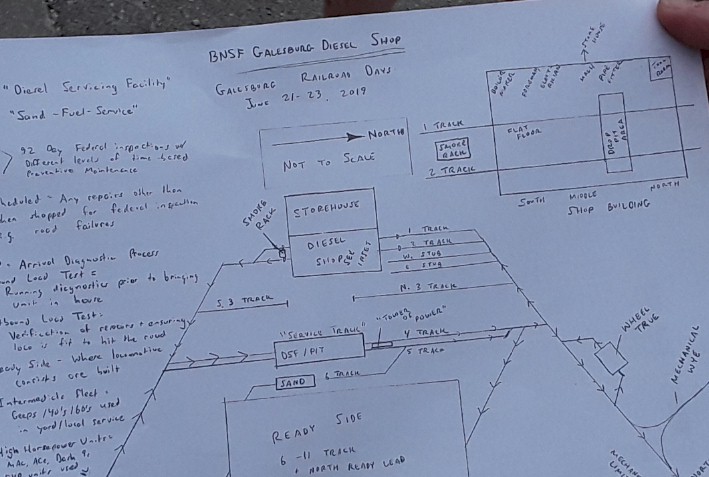 BNSF GALESBURG DIESEL SHOP
GALESBURG RAILROAD DAYS
JUNE 21-23, 2019
"Diesel Servicing Facility"
"Sand-Fuel-Service"
92 Day Federal inspections w/
Different levels of time based
Preventive Maintenance
- Any repairs other than
when shopped for federal inspection
road failures
- Arrival Diagnostic Process
Load Test &
Running diagnostics prior to bringing
unit in house
Load Test:
Verification of repairs + ensuring
loco is fit to hit the road
Ready Side - Where locomotive
consists are built
Intermediate Fleet -
Geeps/40's/60's used
in yard/local service
High Horsepower Units-
units used
NORTH
NOT TO SCALE
STORE HOUSE
TOOL ROOM
1 TRACK
SMOKE RACK
2 TRACK
FLAT FLOOR
DROP PIT AREA
SOUTH MIDDLE NORTH
SHOP BUILDING
STOREHOUSE
DIESEL SHOP
SEE INSET
SMOKE RACK
1 TRACK
2 TRACK
W. STUB
E. STUB
S. 3 TRACK
N. 3 TRACK
"SERVICE TRACK"
DSF/PIT
"TOWER OF POWER"
4 TRACK
5 TRACK
SAND
6 TRACK
WHEEL TRUE
MECHANICAL WYE
READY SIDE
6-11 TRACK
+ NORTH READY LEAD